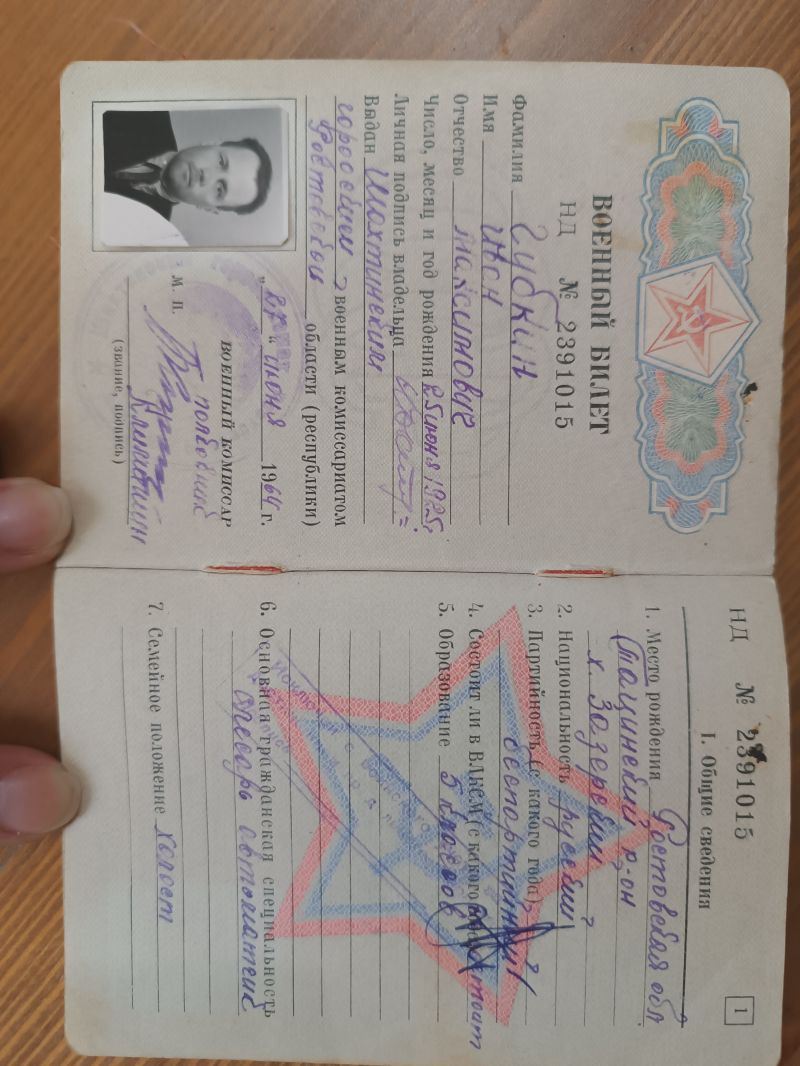 ВОЕННЫЙ БИЛЕТ
НД № 2391015
Фамилия Губкин
Имя Иван
Отчество Максимович
Число, месяц и год рождения 25 июня 1925г
Личная подпись владельца
Выдан Шахтинским
городским военным комиссариатом
Ростовской области (республики)
"27" июня 1964 г.
ВОЕННЫЙ КОМИССАР
М. П. Подполковник
(звание, подпись)
НД № 2391015
1
I. Общие сведения
1. Место рождения Ростовская обл
Тацинский р-он
х. Зазерский
2. Национальность русский
3. Партийность (с какого года)
беспартийный
4. Состоит ли в ВЛКСМ (с какого
5. Образование 5 классов
6. Основная гражданская специальность
слесарь
7. Семейное положение холост